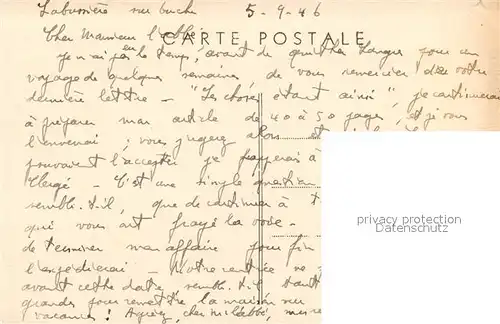 Labussière sur Ouche 5-9-46
CARTE POSTALE
Cher Monsieur l'abbé
je n'ai pas eu le temps, avant de quitter Langres pour un
voyage de quelques semaines, de vous remercier de votre
dernière lettre - "Les choses étant ainsi", je continuerai
à préparer mon article de 40 à 50 pages, et je vous
l'enverrai ; vous jugerez alors
pouvant l'accepter je à
Clergé - C'est une simple question
semble-t-il, que de continuer à
qui vous ont frayé la voie -
de terminer mon affaire pour fin
l'expédierai - Notre rentrée ne
avant cette date, semble-t-il
grandes pour remettre la maison
vacances ! Agréez, cher M. l'abbé, mes
privacy protection
Datenschutz